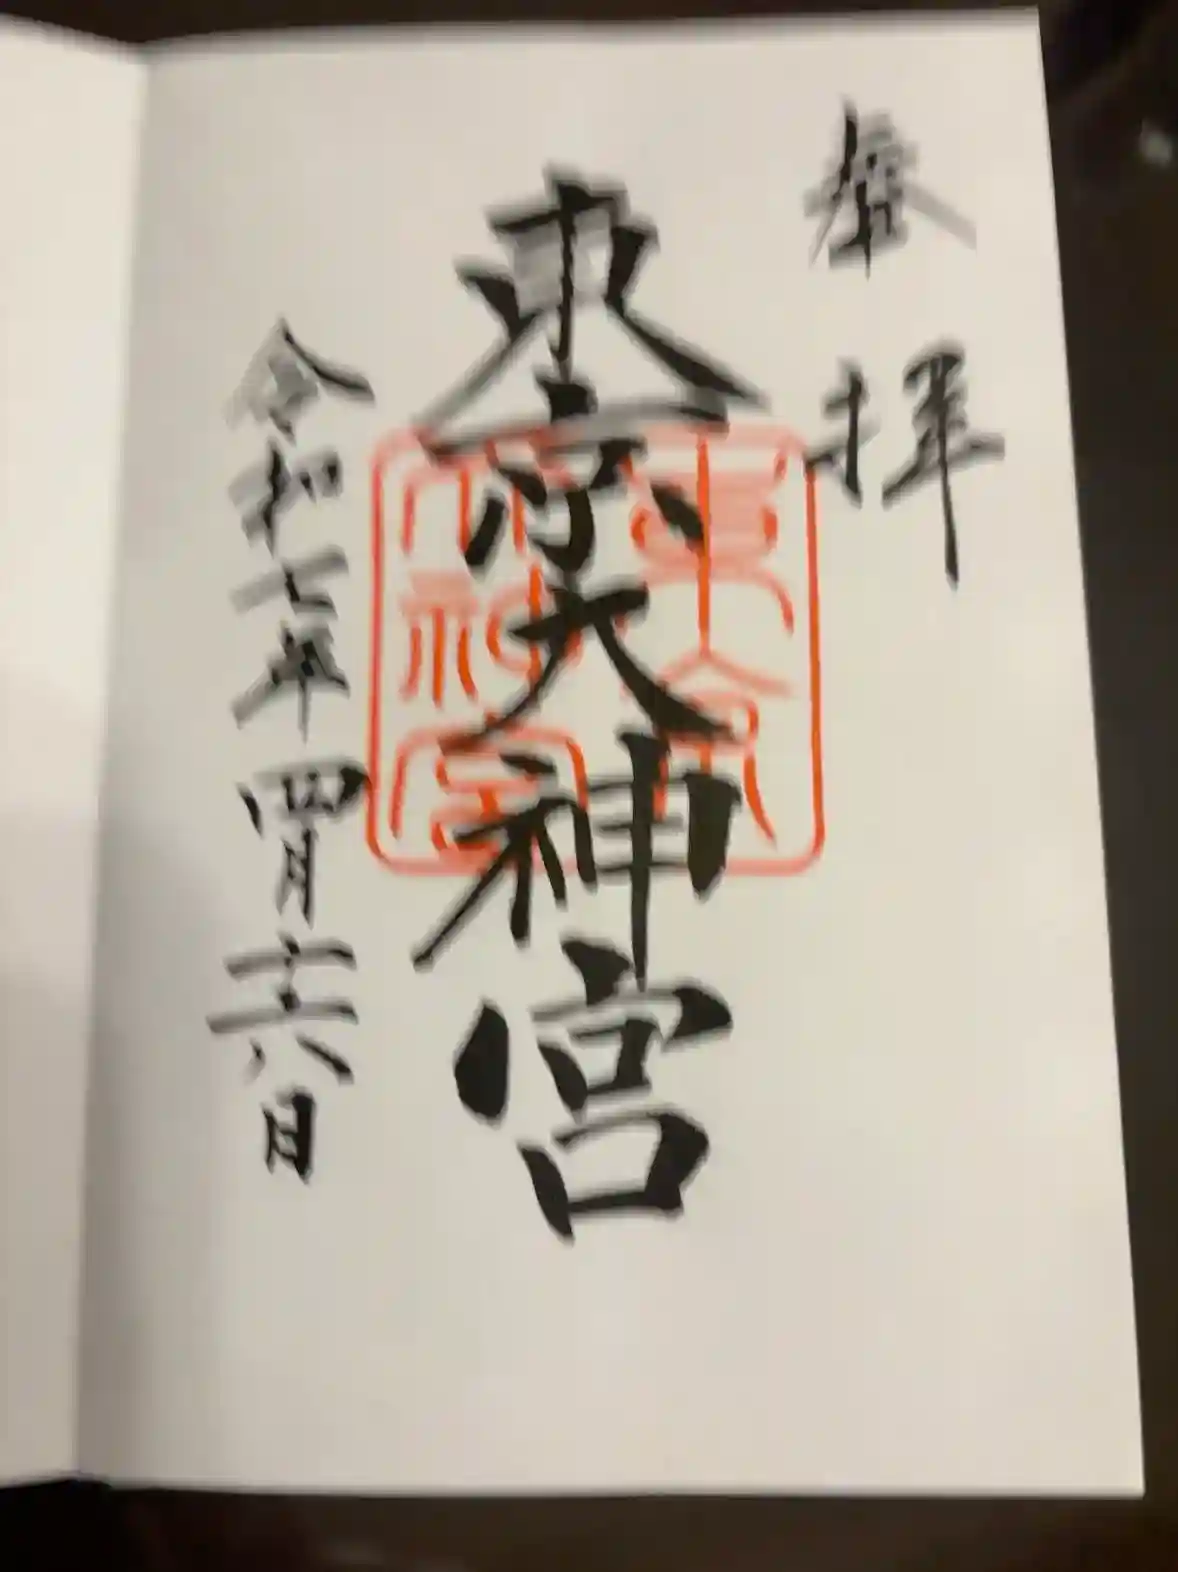 奉拝
東京大神宮
東京大神宮
令和七年四月十六日